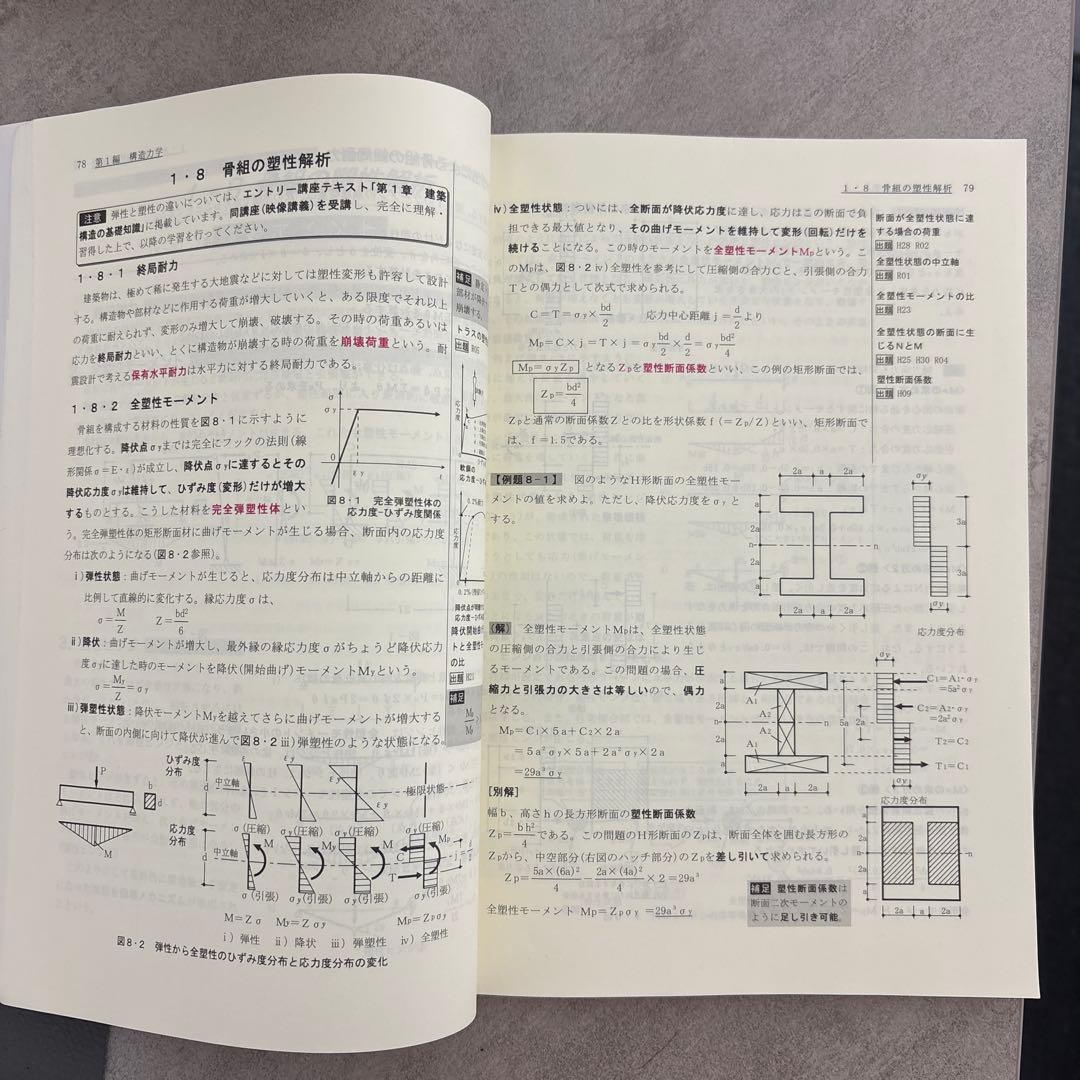 78 第1編 構造力学
1・8 骨組の塑性解析
注意 弾性と塑性の違いについては、エントリー講座テキスト「第1章 建築
構造の基礎知識」に掲載しています。同講座(映像講義)を受講し、完全に理解・
習得した上で、以降の学習を行ってください。
1・8・1 終局耐力
建築物は、極めて稀に発生する大地震などに対しては塑性変形も許容して設計
する。構造物や部材などに作用する荷重が増大していくと、ある限度でそれ以上
の荷重に耐えられず、変形のみ増大して崩壊、破壊する。その時の荷重あるいは
応力を終局耐力といい、とくに構造物が崩壊する時の荷重を崩壊荷重という。耐
震設計で考える保有水平耐力は水平力に対する終局耐力である。
1・8・2 全塑性モーメント
骨組を構成する材料の性質を図8・1に示すように
理想化する。降伏点σyまでは完全にフックの法則(線
形関係σ=E・ε)が成立し、降伏点σyに達するとその
降伏応力度σyは維持して、ひずみ度(変形)だけが増大
するものとする。こうした材料を完全弾塑性体とい
う。完全弾塑性体の矩形断面材に曲げモーメントが生じる場合、断面内の応力度
分布は次のようになる(図8・2参照)。
σ
σy
0
εy
ε
図8・1 完全弾塑性体の
応力度-ひずみ度関係
i)弾性状態:曲げモーメントが生じると、応力度分布は中立軸からの距離に
比例して直線的に変化する。縁応力度σは、
σ=M/Z Z=bd²/6
ii)降伏:曲げモーメントが増大し、最外縁の縁応力度σがちょうど降伏応力
度σyに達した時のモーメントを降伏(開始曲げ)モーメントMyという。
σ=My/Z=σy
iii)弾塑性状態:降伏モーメントMyを越えてさらに曲げモーメントが増大する
と、断面の内側に向けて降伏が進んで図8・2 iii)弾塑性のような状態になる。
P
b
d
M
ひずみ度
分布
d
中立軸
ε
εy
εy
εy
極限状態
応力度
分布
d
中立軸
σ(圧縮) σy(圧縮) σy(圧縮) σy(圧縮)
M My M Mp
C
T
j
σ(引張) σy(引張) σy(引張) σy(引張)
M=Zσ My=Zσy Mp=Zpσy
i)弾性 ii)降状 iii)弾塑性 iv)全塑性
図8・2 弾性から全塑性のひずみ度分布と応力度分布の変化
補足
崩壊する。
出題 R05
応力度
軟鋼の
応力度
0.2%
降伏開始曲げ
トと全塑性モ
の比
出題 H21
補足
My/Mp
1・8 骨組の塑性解析 79
iv)全塑性状態:ついには、全断面が降伏応力度に達し、応力はこの断面で負
担できる最大値となり、その曲げモーメントを維持して変形(回転)だけを
続けることになる。この時のモーメントを全塑性モーメントMpという。こ
のMpは、図8・2 iv)全塑性を参考にして圧縮側の合力Cと、引張側の合力
Tとの偶力として次式で求められる。
C=T=σy×bd/2 応力中心距離 j=d/2より
Mp=C×j=T×j=σy bd/2×d/2=σy bd²/4
Mp=σyZp となるZpを塑性断面係数といい、この例の矩形断面では、
Zp=bd²/4
Zpと通常の断面係数Zとの比を形状係数f(=Zp/Z)といい、矩形断面で
は、f=1.5である。
断面が全塑性状態に達
する場合の荷重
出題 H28 R02
全塑性状態の中立軸
出題 R01
全塑性モーメントの比
出題 H23
全塑性状態の断面に生
じるNとM
出題 H25 H30 R04
塑性断面係数
出題 H09
【例題8-1】 図のようなH形断面の全塑性モー
メントの値を求めよ。ただし、降伏応力度をσyと
する。
2a a 2a
a
2a
n n
2a
a
2a a 2a
σy
3a
3a
σy
応力度分布
(解) 全塑性モーメントMpは、全塑性状態
の圧縮側の合力と引張側の合力により生じ
るモーメントである。この問題の場合、圧
縮力と引張力の大きさは等しいので、偶力
となる。
Mp=C1×5a+C2×2a
=5a²σy×5a+2a²σy×2a
=29a³σy
a
A1
2a
A2
n n
2a
A1
a
2a a 2a
5a 2a
σy
C1=A1・σy
=5a²σy
C2=A2・σy
=2a²σy
T2=C2
T1=C1
σy
応力度分布
[別解]
幅b、高さhの長方形断面の塑性断面係数
Zp=bh²/4である。この問題のH形断面のZpは、断面全体を囲む長方形の
Zpから、中空部分(右図のハッチ部分)のZpを差し引いて求められる。
Zp=5a×(6a)²/4-2a×(4a)²/4×2=29a³
全塑性モーメント Mp=Zpσy=29a³σy
補足 塑性断面係数は
断面二次モーメントの
ように足し引き可能。
a
2a
n n
2a
a
2a a 2a